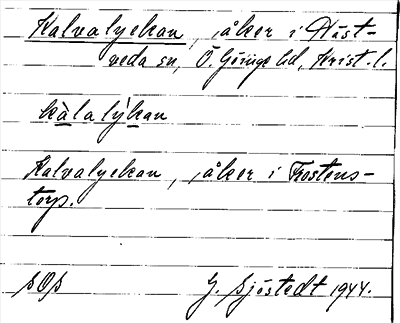 Kalvalyckan, åker i Häst-
veda sn, Ö. Göinge hd, Krist. l.
kàlalýkan
Kalvalyckan, åker i Trostens-
torp.
G. Sjöstedt 1944.